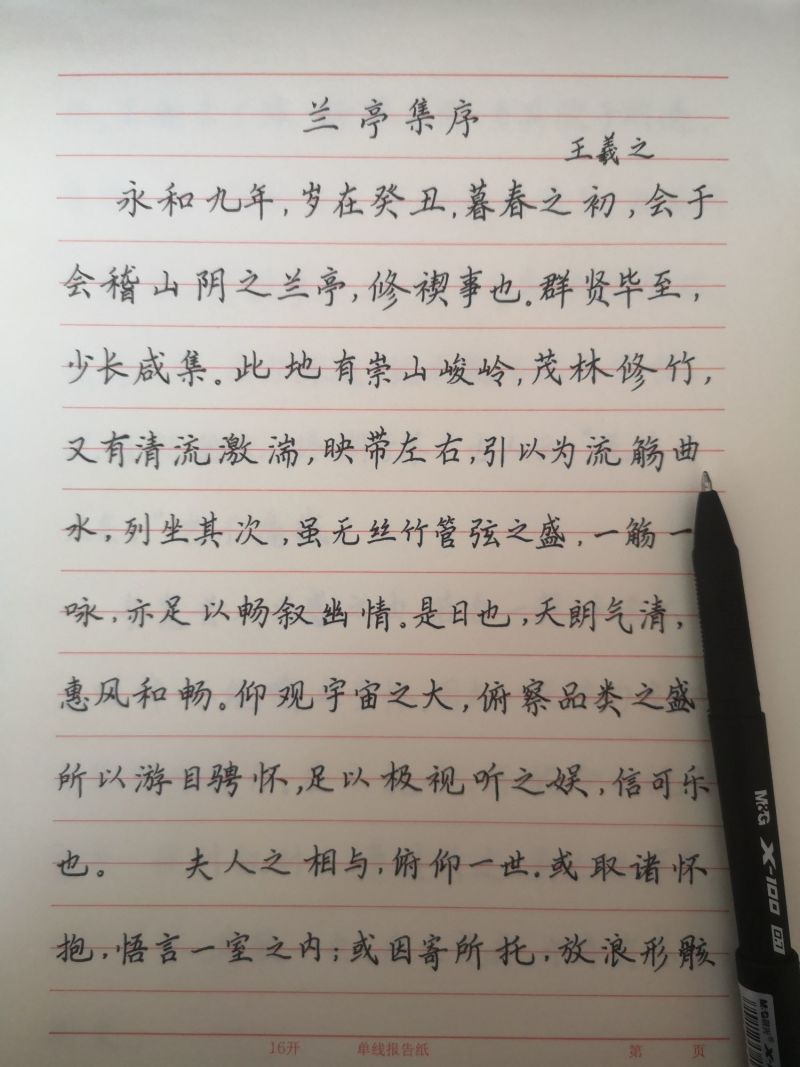 兰亭集序
王羲之
永和九年,岁在癸丑,暮春之初,会于
会稽山阴之兰亭,修禊事也。群贤毕至,
少长咸集。此地有崇山峻岭,茂林修竹,
又有清流激湍,映带左右,引以为流觞曲
水,列坐其次,虽无丝竹管弦之盛,一觞一
咏,亦足以畅叙幽情。是日也,天朗气清,
惠风和畅。仰观宇宙之大,俯察品类之盛
所以游目骋怀,足以极视听之娱,信可乐
也。 夫人之相与,俯仰一世。或取诸怀
抱,悟言一室之内;或因寄所托,放浪形骸
16开 单线报告纸 第 页
M&G X-100
M&G